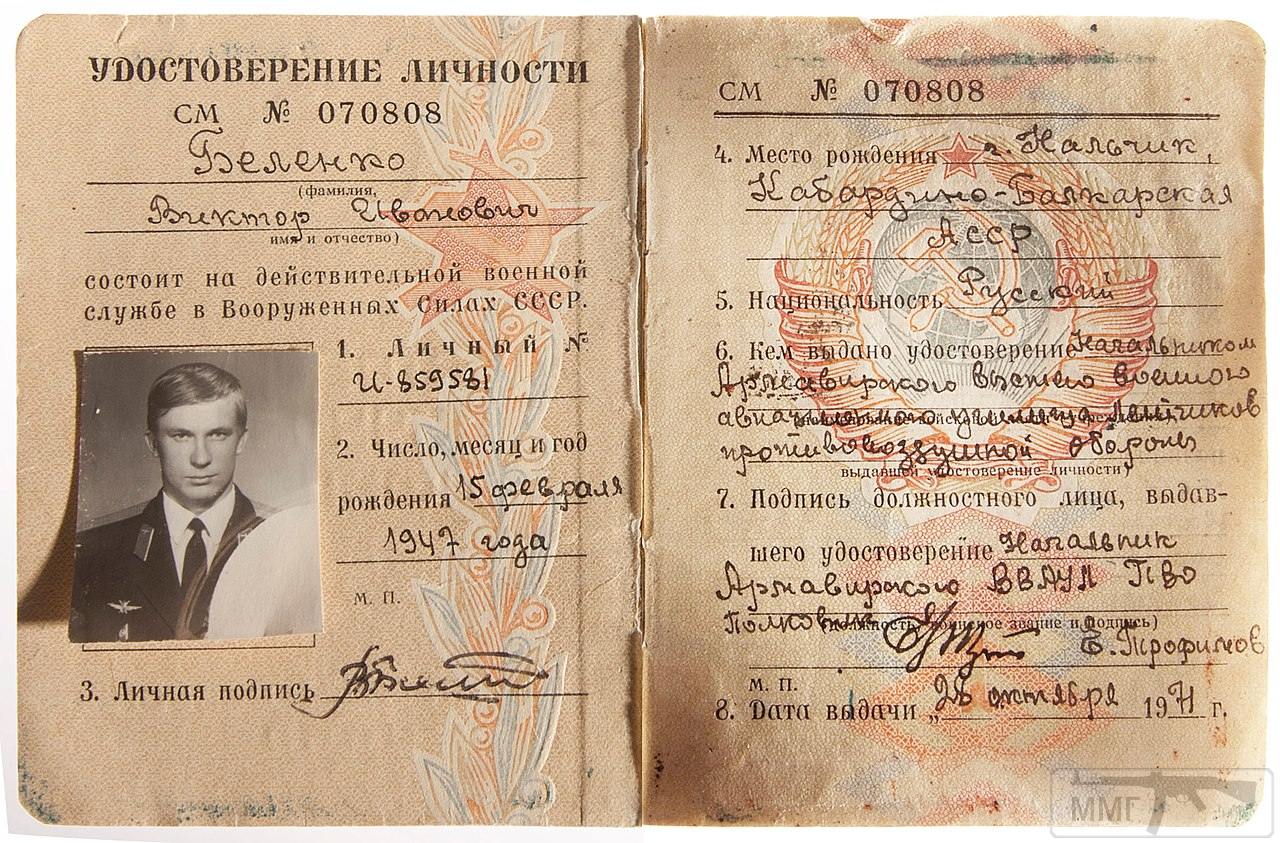 УДОСТОВЕРЕНИЕ ЛИЧНОСТИ
СМ № 070808
Беленко
(фамилия,
Виктор Иванович
имя и отчество)
состоит на действительной военной
службе в Вооруженных Силах СССР.
1. Личный №
И-859581
2. Число, месяц и год
рождения 15 февраля
1947 года
М. П.
3. Личная подпись
СМ № 070808
4. Место рождения г. Нальчик,
Кабардино-Балкарская
АССР
5. Национальность Русский
6. Кем выдано удостоверение Начальником
Армавирского высшего военного
авиационного училища летчиков
противовоздушной обороны
выдавшей удостоверение личности)
7. Подпись должностного лица, выдав-
шего удостоверение Начальник
Армавирского ВВАУЛ ПВО
Полковник (должность, воинское звание и подпись)
Е. Трофимов
М. П.
8. Дата выдачи „26 октября 1971 г.
ММГ